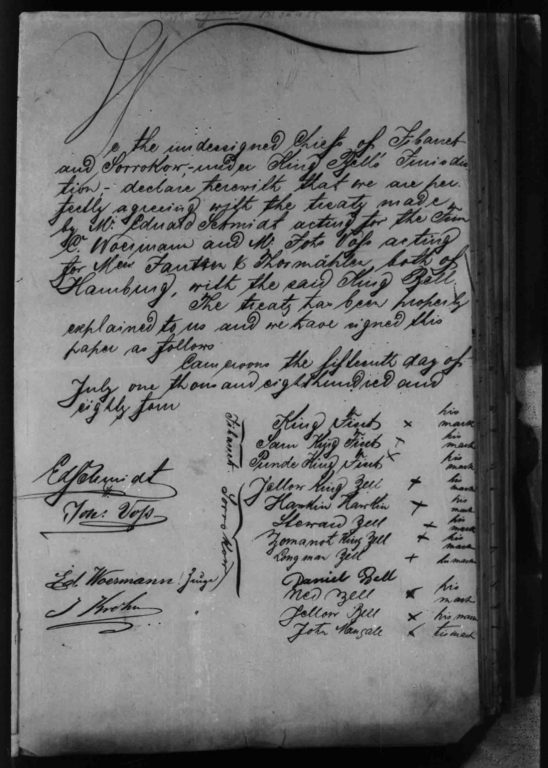 We the undersigned Chiefs of Tibanet
and Sorrokow, under King Bell's Jurisdic
tion, declare herewith that we are per
fectly agreeing with the treaty made
by Mr Eduard Schmidt acting for the Firm
C. Woermann and Mr Johs Voss acting
for Messrs Jantzen & Thormählen both of
Hamburg, with the said King Bell.
The treaty has been properly
explained to us and we have signed this
paper as follows
Cameroons the fifteenth day of
July one thousand eighthundred and
eighty four
King First x his mark
Sam King First x his mark
Punde King First x his mark
Jellow King Bell + his mark
Hawkin Hawkin x his mark
Steward Bell + his mark
King Bell + his mark
Longman Bell + his mark
Daniel Bell
Ned Bell x his mark
Jellow Bell x his mark
John Mangale x his mark
Tibanet
Sorrokow
Ed Schmidt
Johs Voss
Ed Woermann Zeuge
J Krohn "